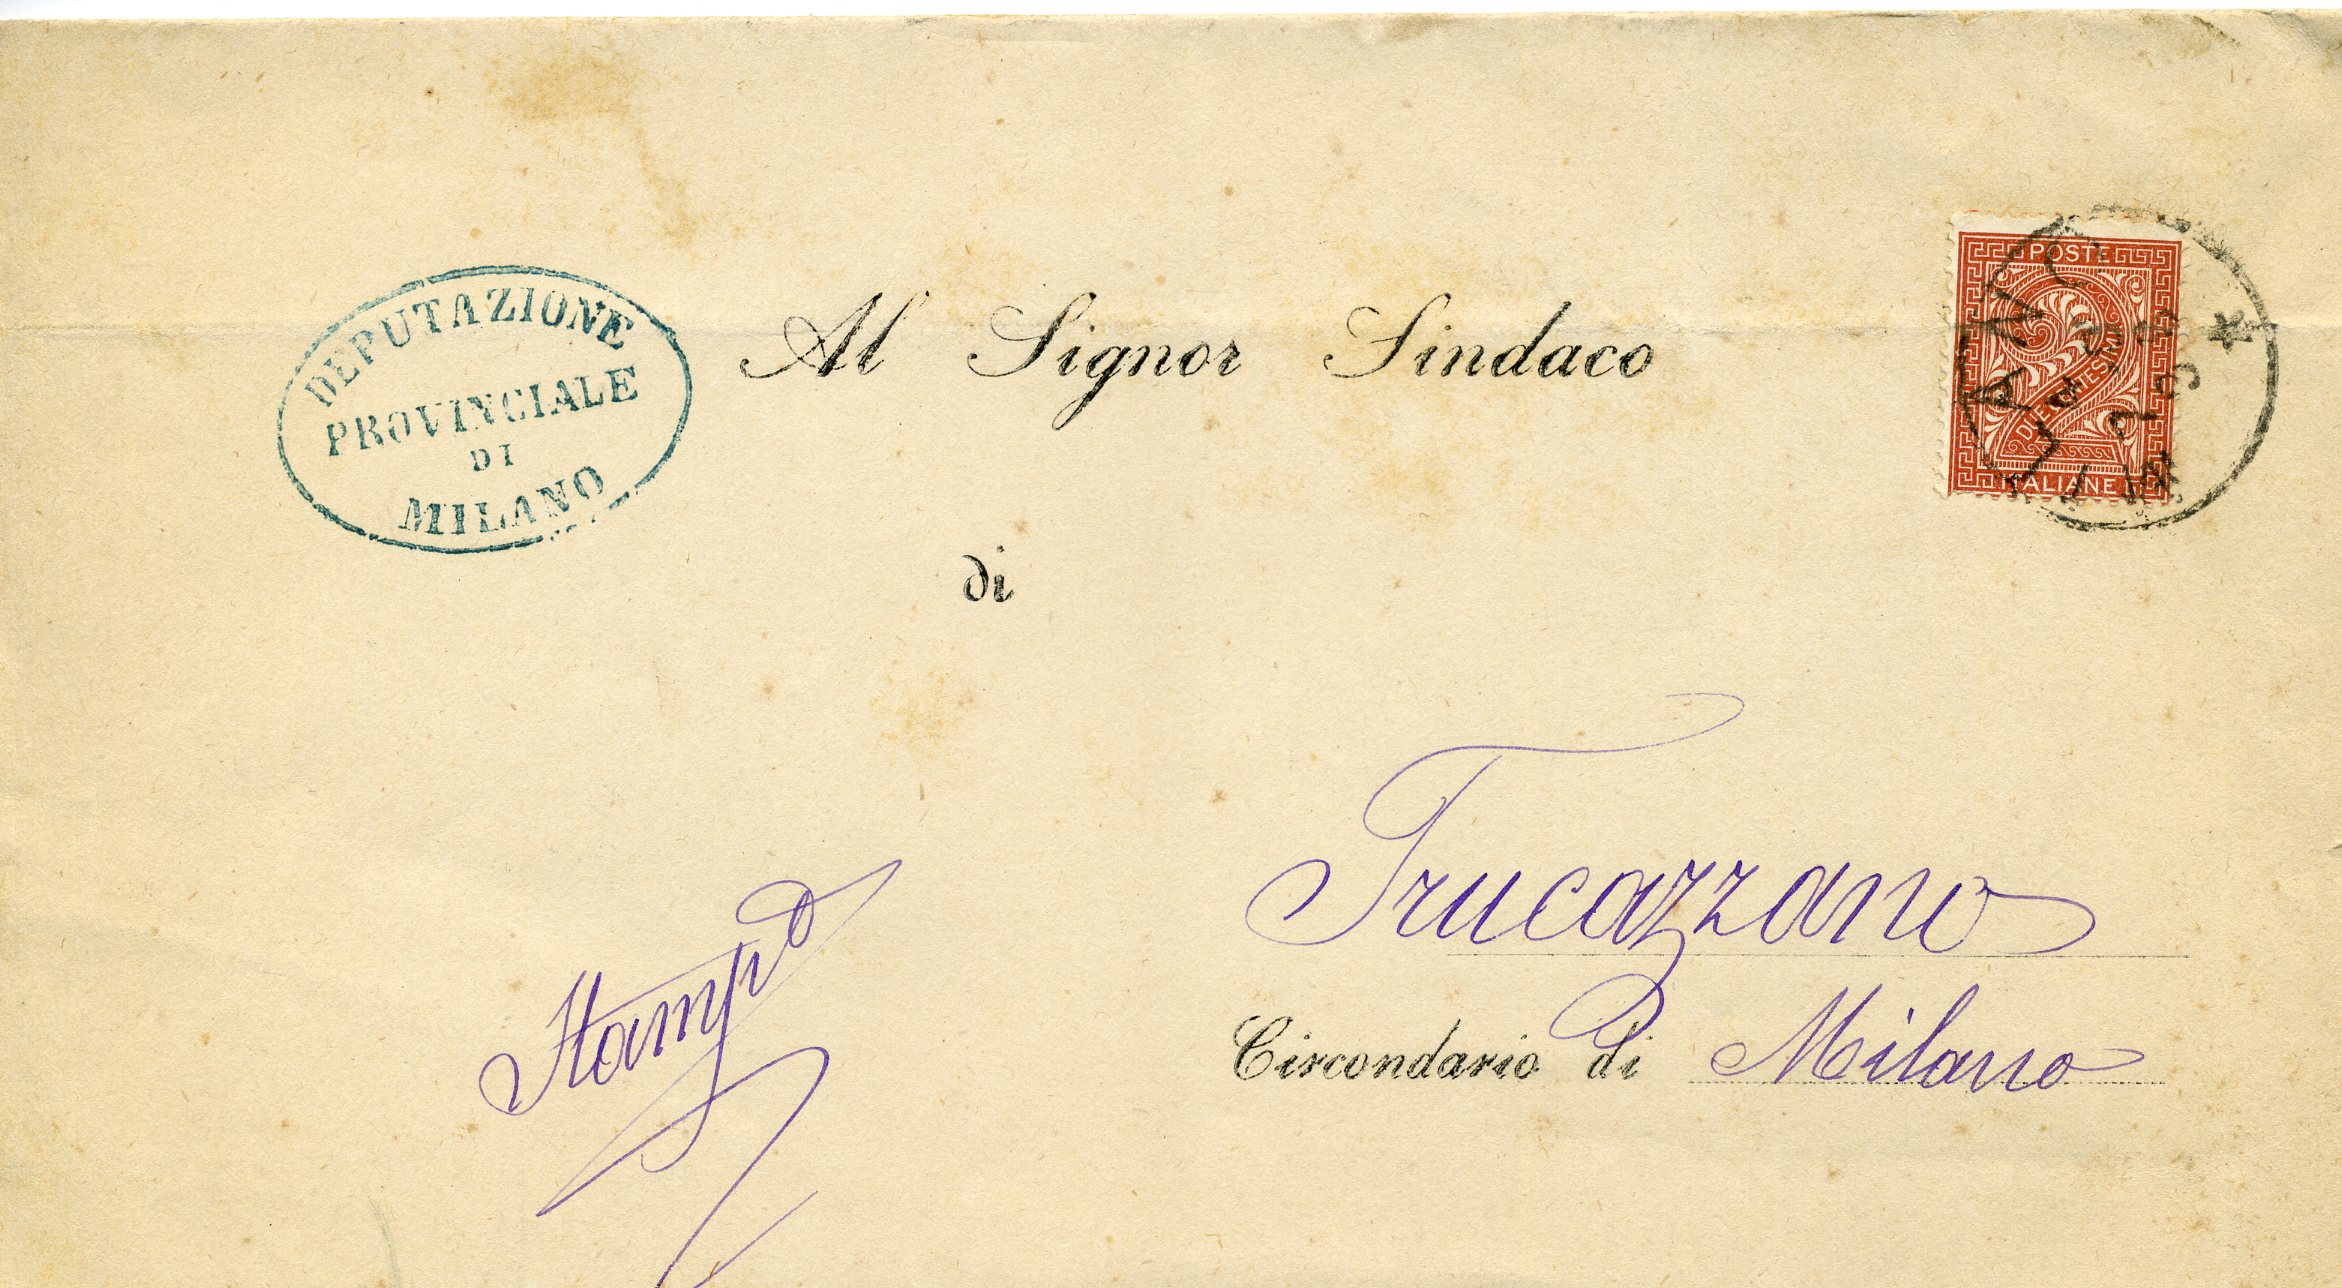 DEPUTAZIONE
PROVINCIALE
DI
MILANO
Al Signor Sindaco
di
Trucazzano
Circondario di Milano
Stampe
POSTE
2
ITALIANE
MILANO